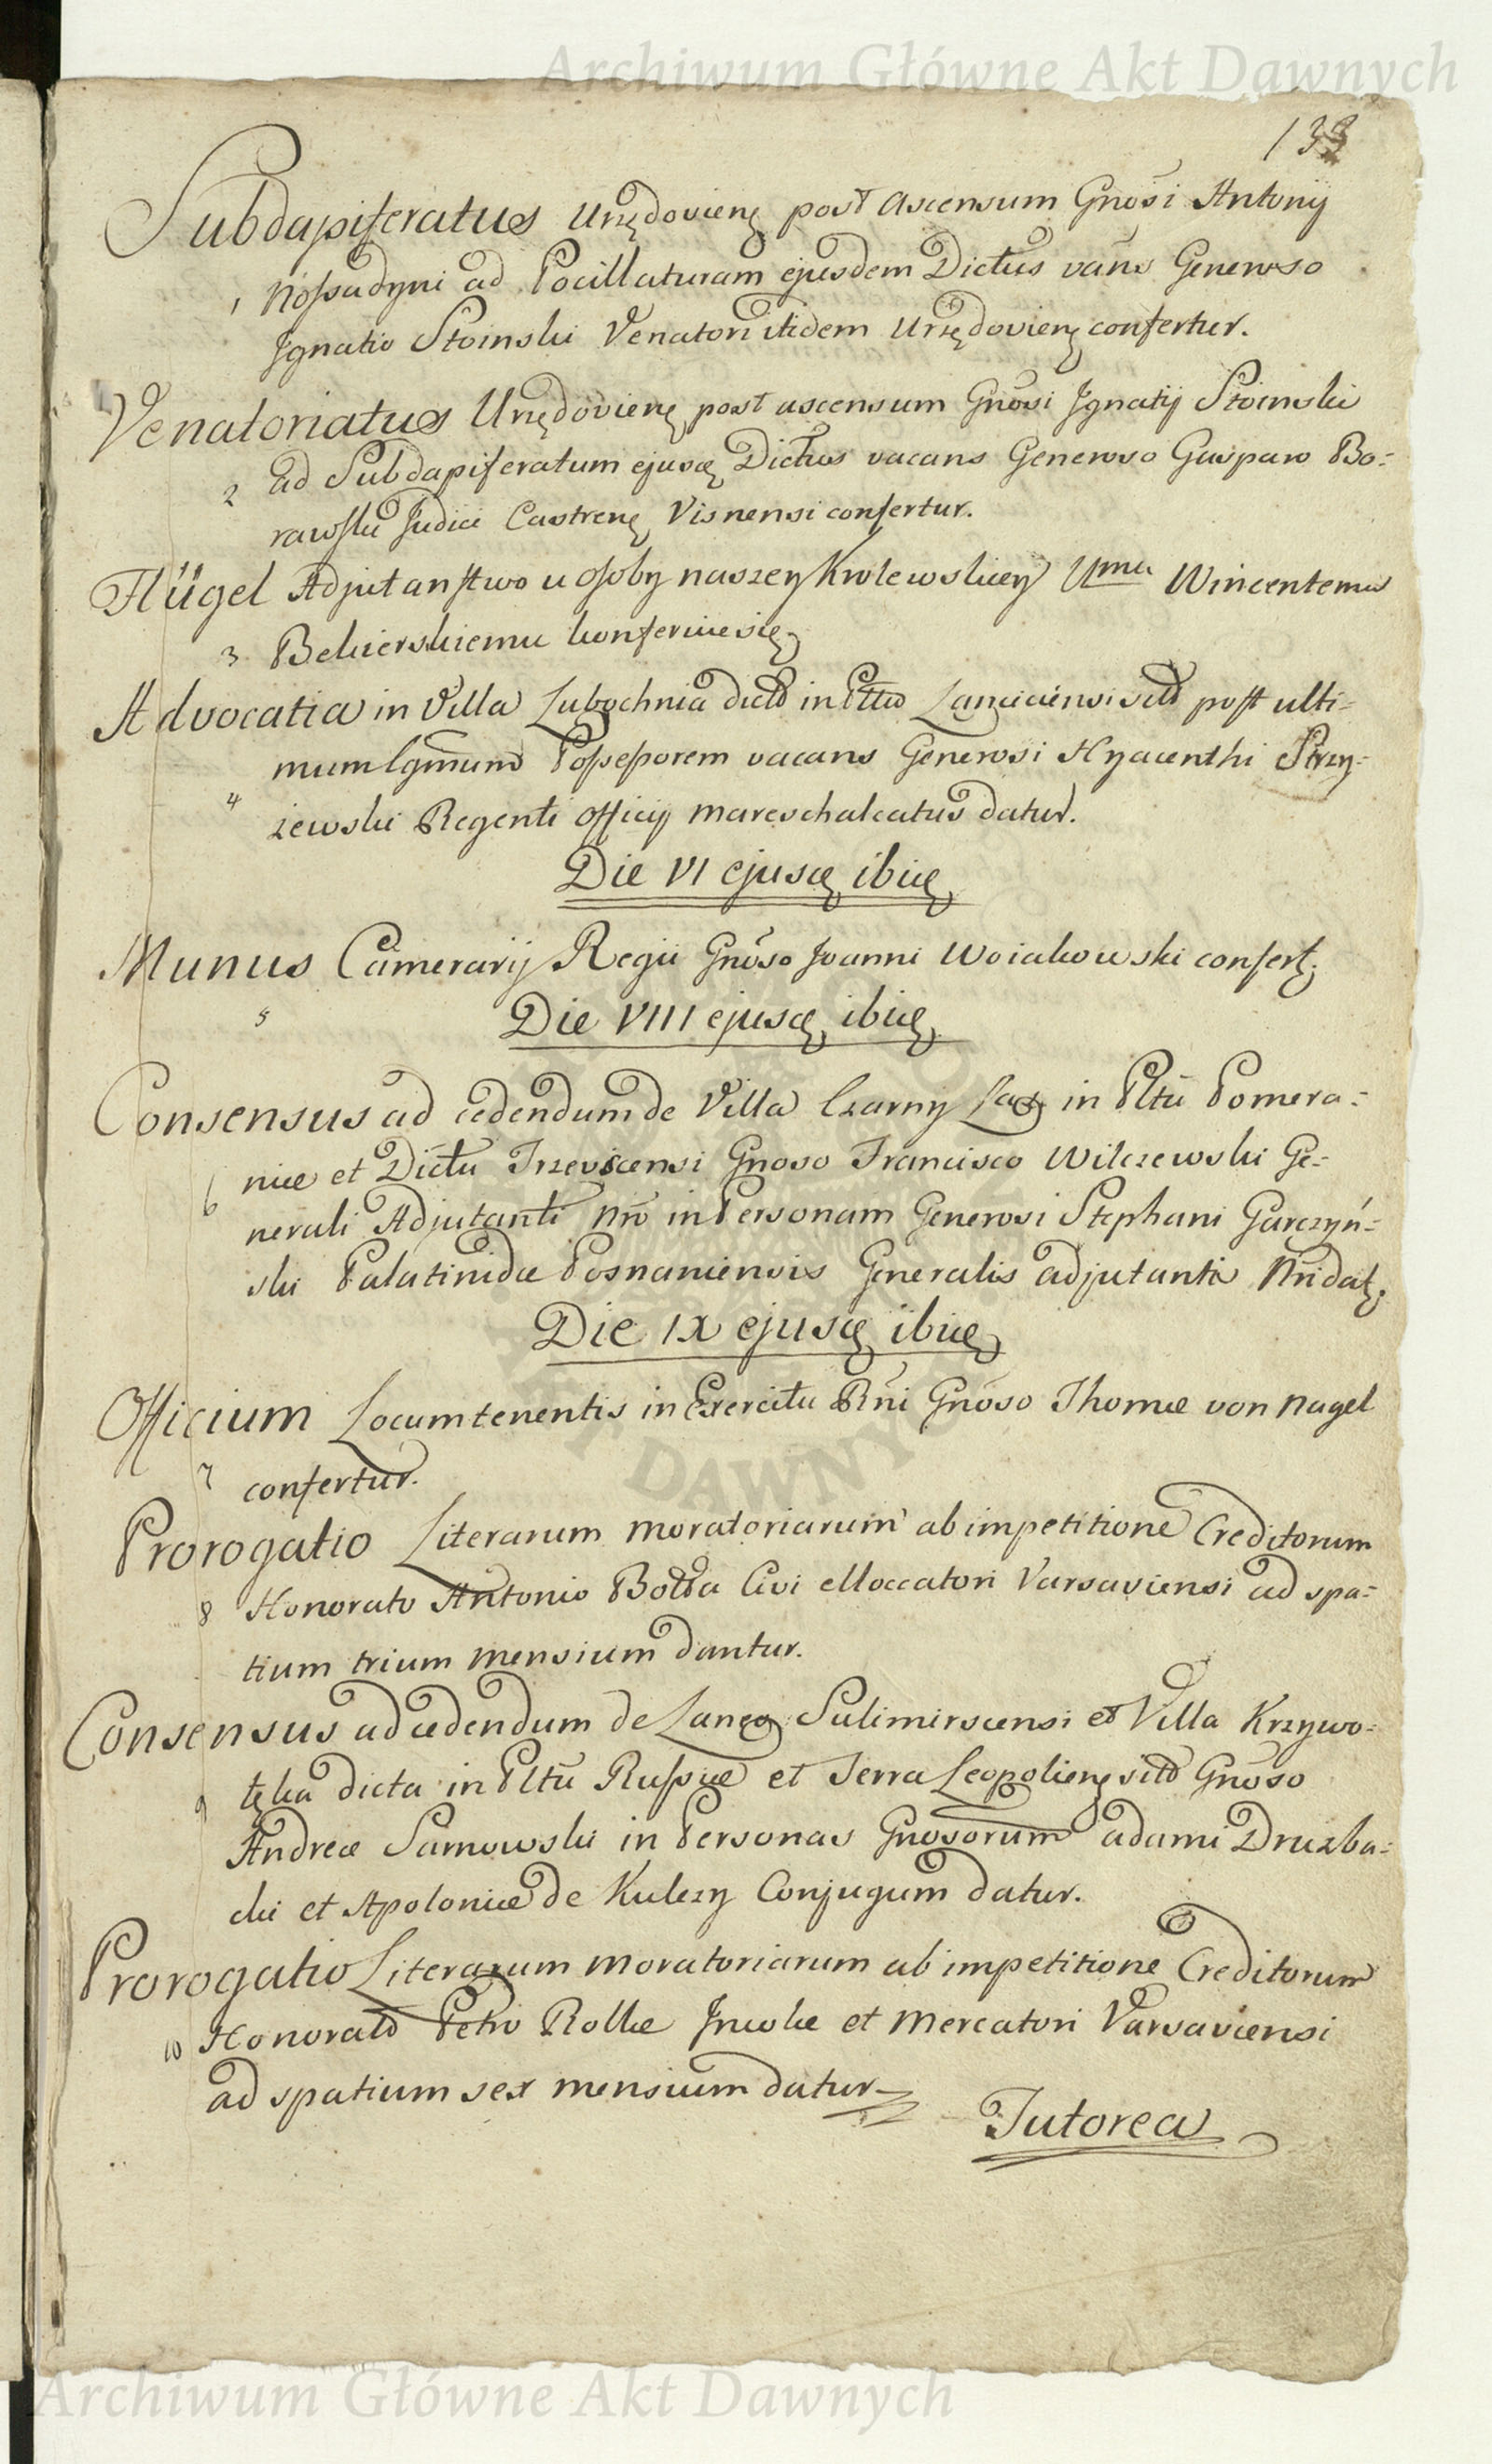 Archiwum Główne Akt Dawnych
133
Subdapiferatus Urzędovienę post ascensum Gnosi Antonij
1 Nossadyni ad Pocillaturam ejusdem Dictus vans Generoso
Ignatio Stoinski Venatori itidem Urzędovienę confertur.
Venatoriatus Urzędovienę post ascensum Gnosi Ignatij Stoinski
2 ad Subdapiferatum ejusdę Dictus vacans Generoso Gasparo Bo=
rawski Judici Castrenę Visnensi confertur.
Flügel Adjutanstwo u osoby naszey Krolewskiey Umu Wincentemu
3 Bekierskiemu konferuie się
Advocatia in Villa Lubochnia dicto in Pttu Lanciciensi sito post ulti=
mum lgmum Possessorem vacans Generosi Hyacinthi Strzy=
4 żewski Regenti officij Mareschalcatus datur.
Die VI ejusdę ibidę
Munus Camerarij Regii Gnoso Joanni Woiakowski confert;
5
Die VIII ejusdę ibidę
Consensus ad cedendum de Villa Czarny Las in Pltu Pomera=
6 niae et Dictu Trzevscensi Gnoso Francisco Wilczewski Ge=
nerali Adjutanti Nro in Personam Generosi Stephani Garczyń=
ski Palatinidae Posnaniensis Generalis adjutantis Nri dat;
Die IX ejusdę ibidę
Officium Locumtenentis in Exercitu Rni Gnoso Thomae von Nagel
7 confertur.
Prorogatio Literarum moratoriarum ab impetitione Creditorum
8 Honorato Antonio Botta Civi elloccatori Varsaviensi ad spa=
tium trium mensium dantur.
Consensus ad cedendum de Laneo Sulimirscensi et Villa Krzywo=
9 tęka dicta in Pltu Russiae et Terra Leopolienę sito Gnoso
Andreae Sarnowski in Personas Gnosorum adami Druzba=
cki et Apoloniae de Kulczy Conjugum datur.
Prorogatio Literarum moratoriarum ab impetitione Creditorum
10 Honorato Petro Rolke Incolae et Mercatori Varsaviensi
ad spatium sex mensium datur
Tutorea
Archiwum Główne Akt Dawnych